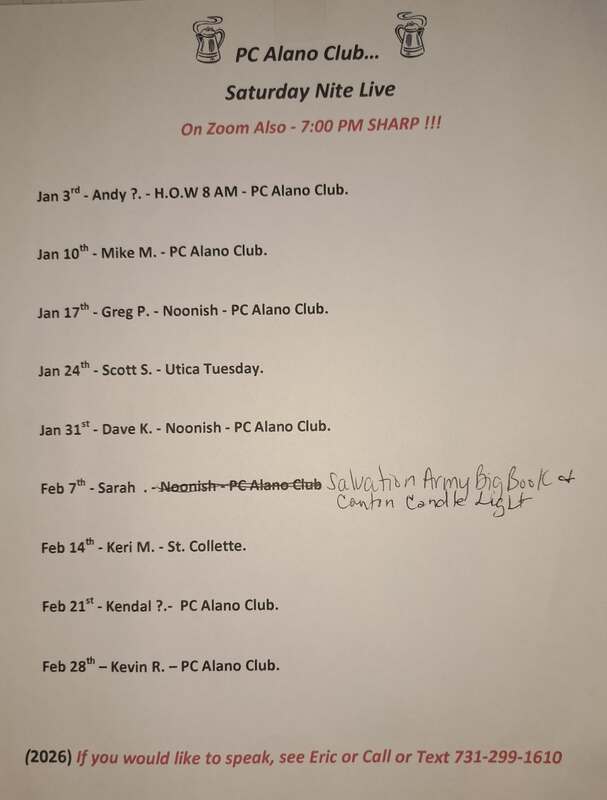 PC Alano Club...
Saturday Nite Live
On Zoom Also - 7:00 PM SHARP !!!
Jan 3rd - Andy ?. - H.O.W 8 AM - PC Alano Club.
Jan 10th - Mike M. - PC Alano Club.
Jan 17th - Greg P. - Noonish - PC Alano Club.
Jan 24th - Scott S. - Utica Tuesday.
Jan 31st - Dave K. - Noonish - PC Alano Club.
Feb 7th - Sarah . - Noonish - PC Alano Club Salvation Army Big Book &
Cantin Candle Light
Feb 14th - Keri M. - St. Collette.
Feb 21st - Kendal ?.- PC Alano Club.
Feb 28th – Kevin R. – PC Alano Club.
(2026) If you would like to speak, see Eric or Call or Text 731-299-1610